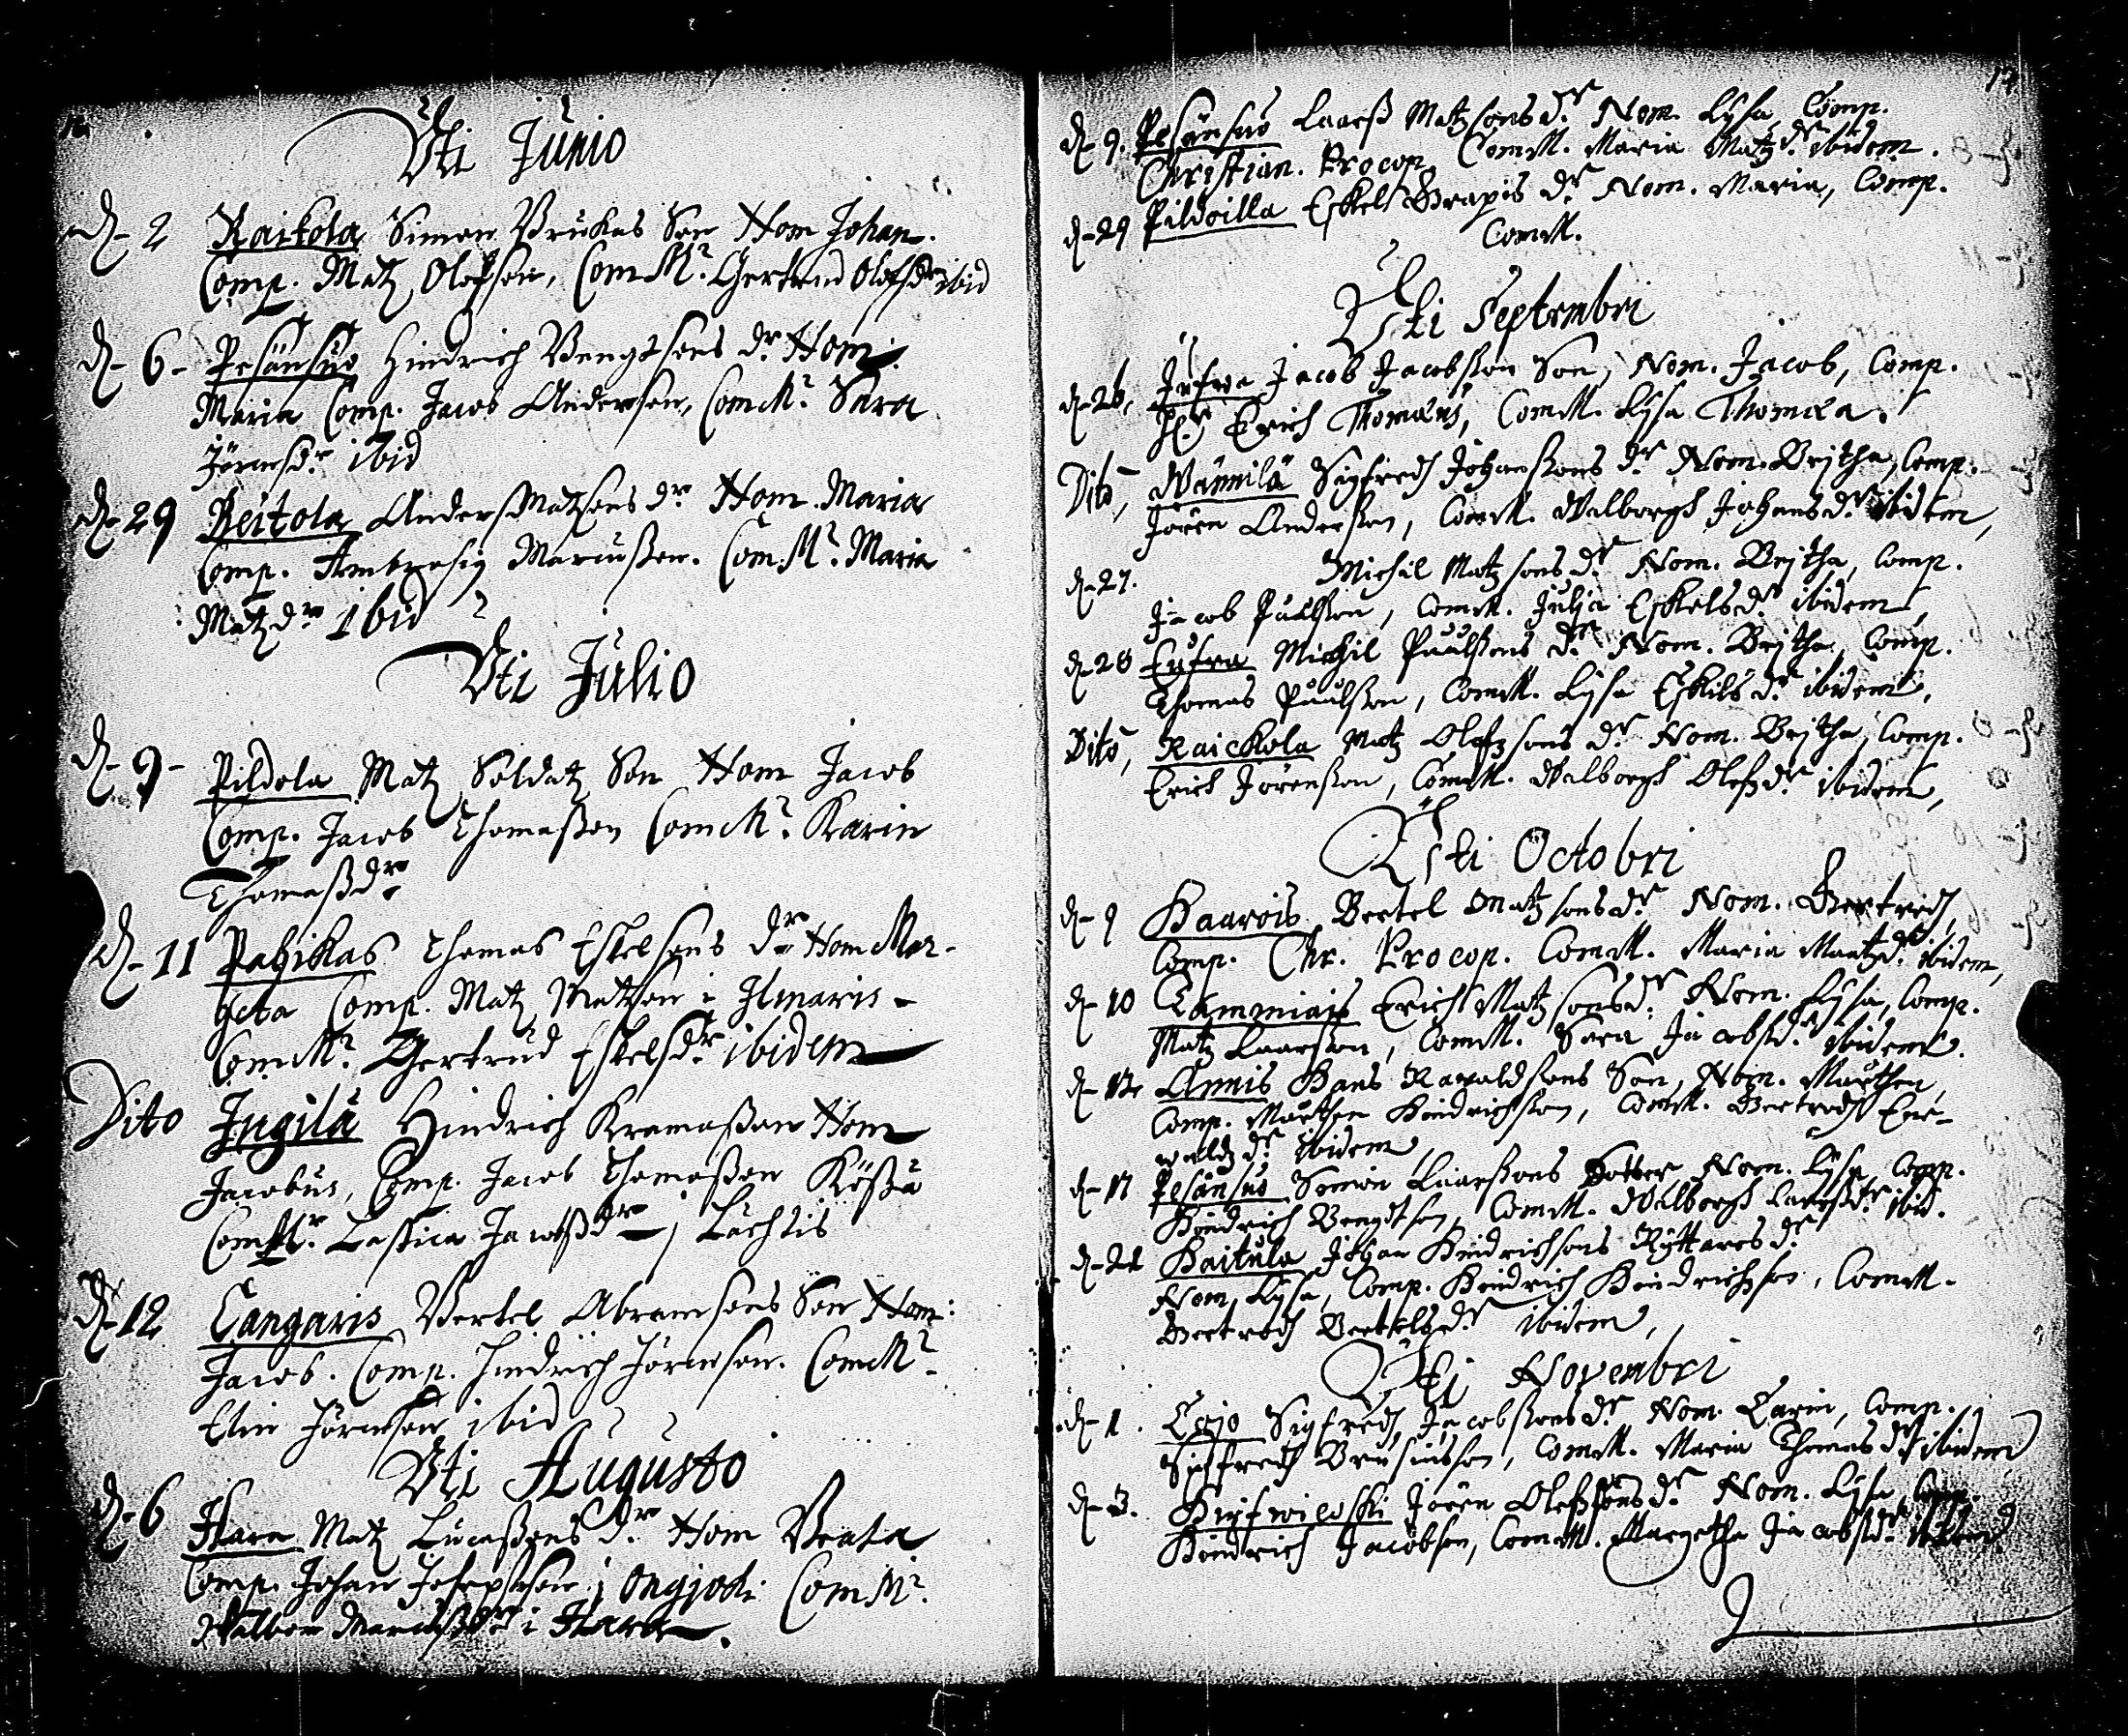 Uti Junio
d. 2 Raikola Simon Brukas Son Nom Johan.
Comp. Matz Olofson, ComM? Gertrud Olofsdr ibid
d. 6 - Pesänsuo Hindrich Bengtsons dr Nom.
Maria Comp. Jacob Anderson, ComM? Sara
Jörensdr ibid
d. 29 Reitola Anders Matzsons dr Nom Maria
Comp. Ambrosiq Marcußon. ComM? Maria
Matzdr ibid
Uti Julio
d. 9 - Pildola Matz Soldatz Son Nom Jacob
Comp. Jacob Thomaßon ComM? Karin
Thomaßdr
d. 11 Pahikas Thomas Eskelsons dr Nom Mar-
geta Comp. Matz Matzson i Ilmaris -
ComM? Gertrud Eskelsdr ibidem
Dito Jngilä Hindrich Kramaßon Nom
Jacobus, Comp. Jacob Thomaßon Kößä
ComMr. Jacobßdr j Lachtis
d. 12 Cangaris Bertel Abramsons Son Nom:
Jacob. Comp. Hindrich Jörenson. ComM?
Elin Jörenson ibid
Uti Augusto
d. 6 Hara Matz Lucaßons dr Nom Beata
Comp. Johan Josephson j Onzjodi ComM?
Walbor Marcußdr i Hara
17
d. 9. Pesänsuo Laarß Matzsons dr Nom. Lysa, Comp.
Christian. Procop. ComM. Maria Matzdr ibidem.
d. 29 Pildoilla Eskel Grapis dr Nom. Maria, Comp.
ComM.
Uti Septembri
d. 26, Jufwa Jacob Jacobßon Son, Nom. Jacob, Comp.
Hr Erich Thomæus, ComM. Lysa Thomæa.
Dito, Wännilä Sigfredh Johanßons dr Nom. Brjtha, Comp.
Jören Anderßon, ComM. Walborgh Johansdr ibidem,
d. 27. Michil Matzsons dr Nom. Brjtha, Comp.
Jacob Puulßon, ComM. Julja Eskelsdr ibidem,
d. 28 Eufra Michil Puulßons dr Nom. Brjtha, Comp.
Thomas Puulßon, ComM. Lysa Eskilsdr ibidem,
Dito, Raickola Matz Olofzsons dr Nom. Brjtha, Comp.
Erich Jörenßon, ComM. Walborgh Olofzdr ibidem,
Uti Octobri
d. 9 Haarois Bertel Matzsons dr Nom. Gertredh,
Comp. Chr. Procop. ComM. Maria Maatzdr ibidem,
d. 10 Tammiais Erich Matzsons dr Nom. Lysa, Comp.
Matz Laarßon, ComM. Sara Jacobsdr ibidem.
d. 12 Annis Hans Son, Nom. Mårthen,
Comp. Mårthen Hindrichßon, ComM. Gertredh
dr ibidem
d. 17 Pesänsuo Simon Laarßons Dotter Nom. Lysa, Comp.
Hindrich Bengdtson, ComM. Walborgh Laarßdr ibid.
d. 22 Haitula Johan Hindrichsons Ryttares dr
Nom. Lysa, Comp. Hindrich Hindrichßon, ComM.
Gertredh Bertelsdr ibidem,
Uti Novembri
d. 1. Erjo Sigfredh Jacobßons dr Nom. Carin, Comp.
Sigfredh Brusiusson, ComM. Maria Thomasdr ibidem
d. 3. Jören Olofßons dr Nom. Lysa, Comp.
Hindrich Jacobson, ComM. Margetha Jacobsdr ibidem